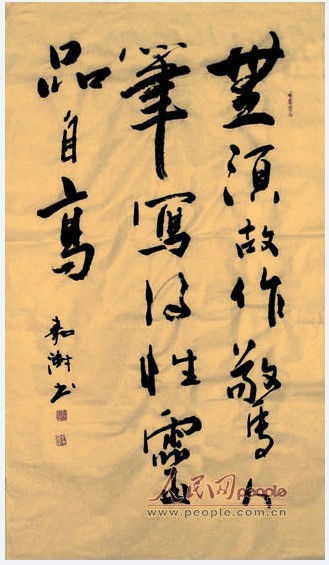 無須故作驚人
筆寫得性靈
品自高
嘉澍书
人民网 people
www.people.com.cn